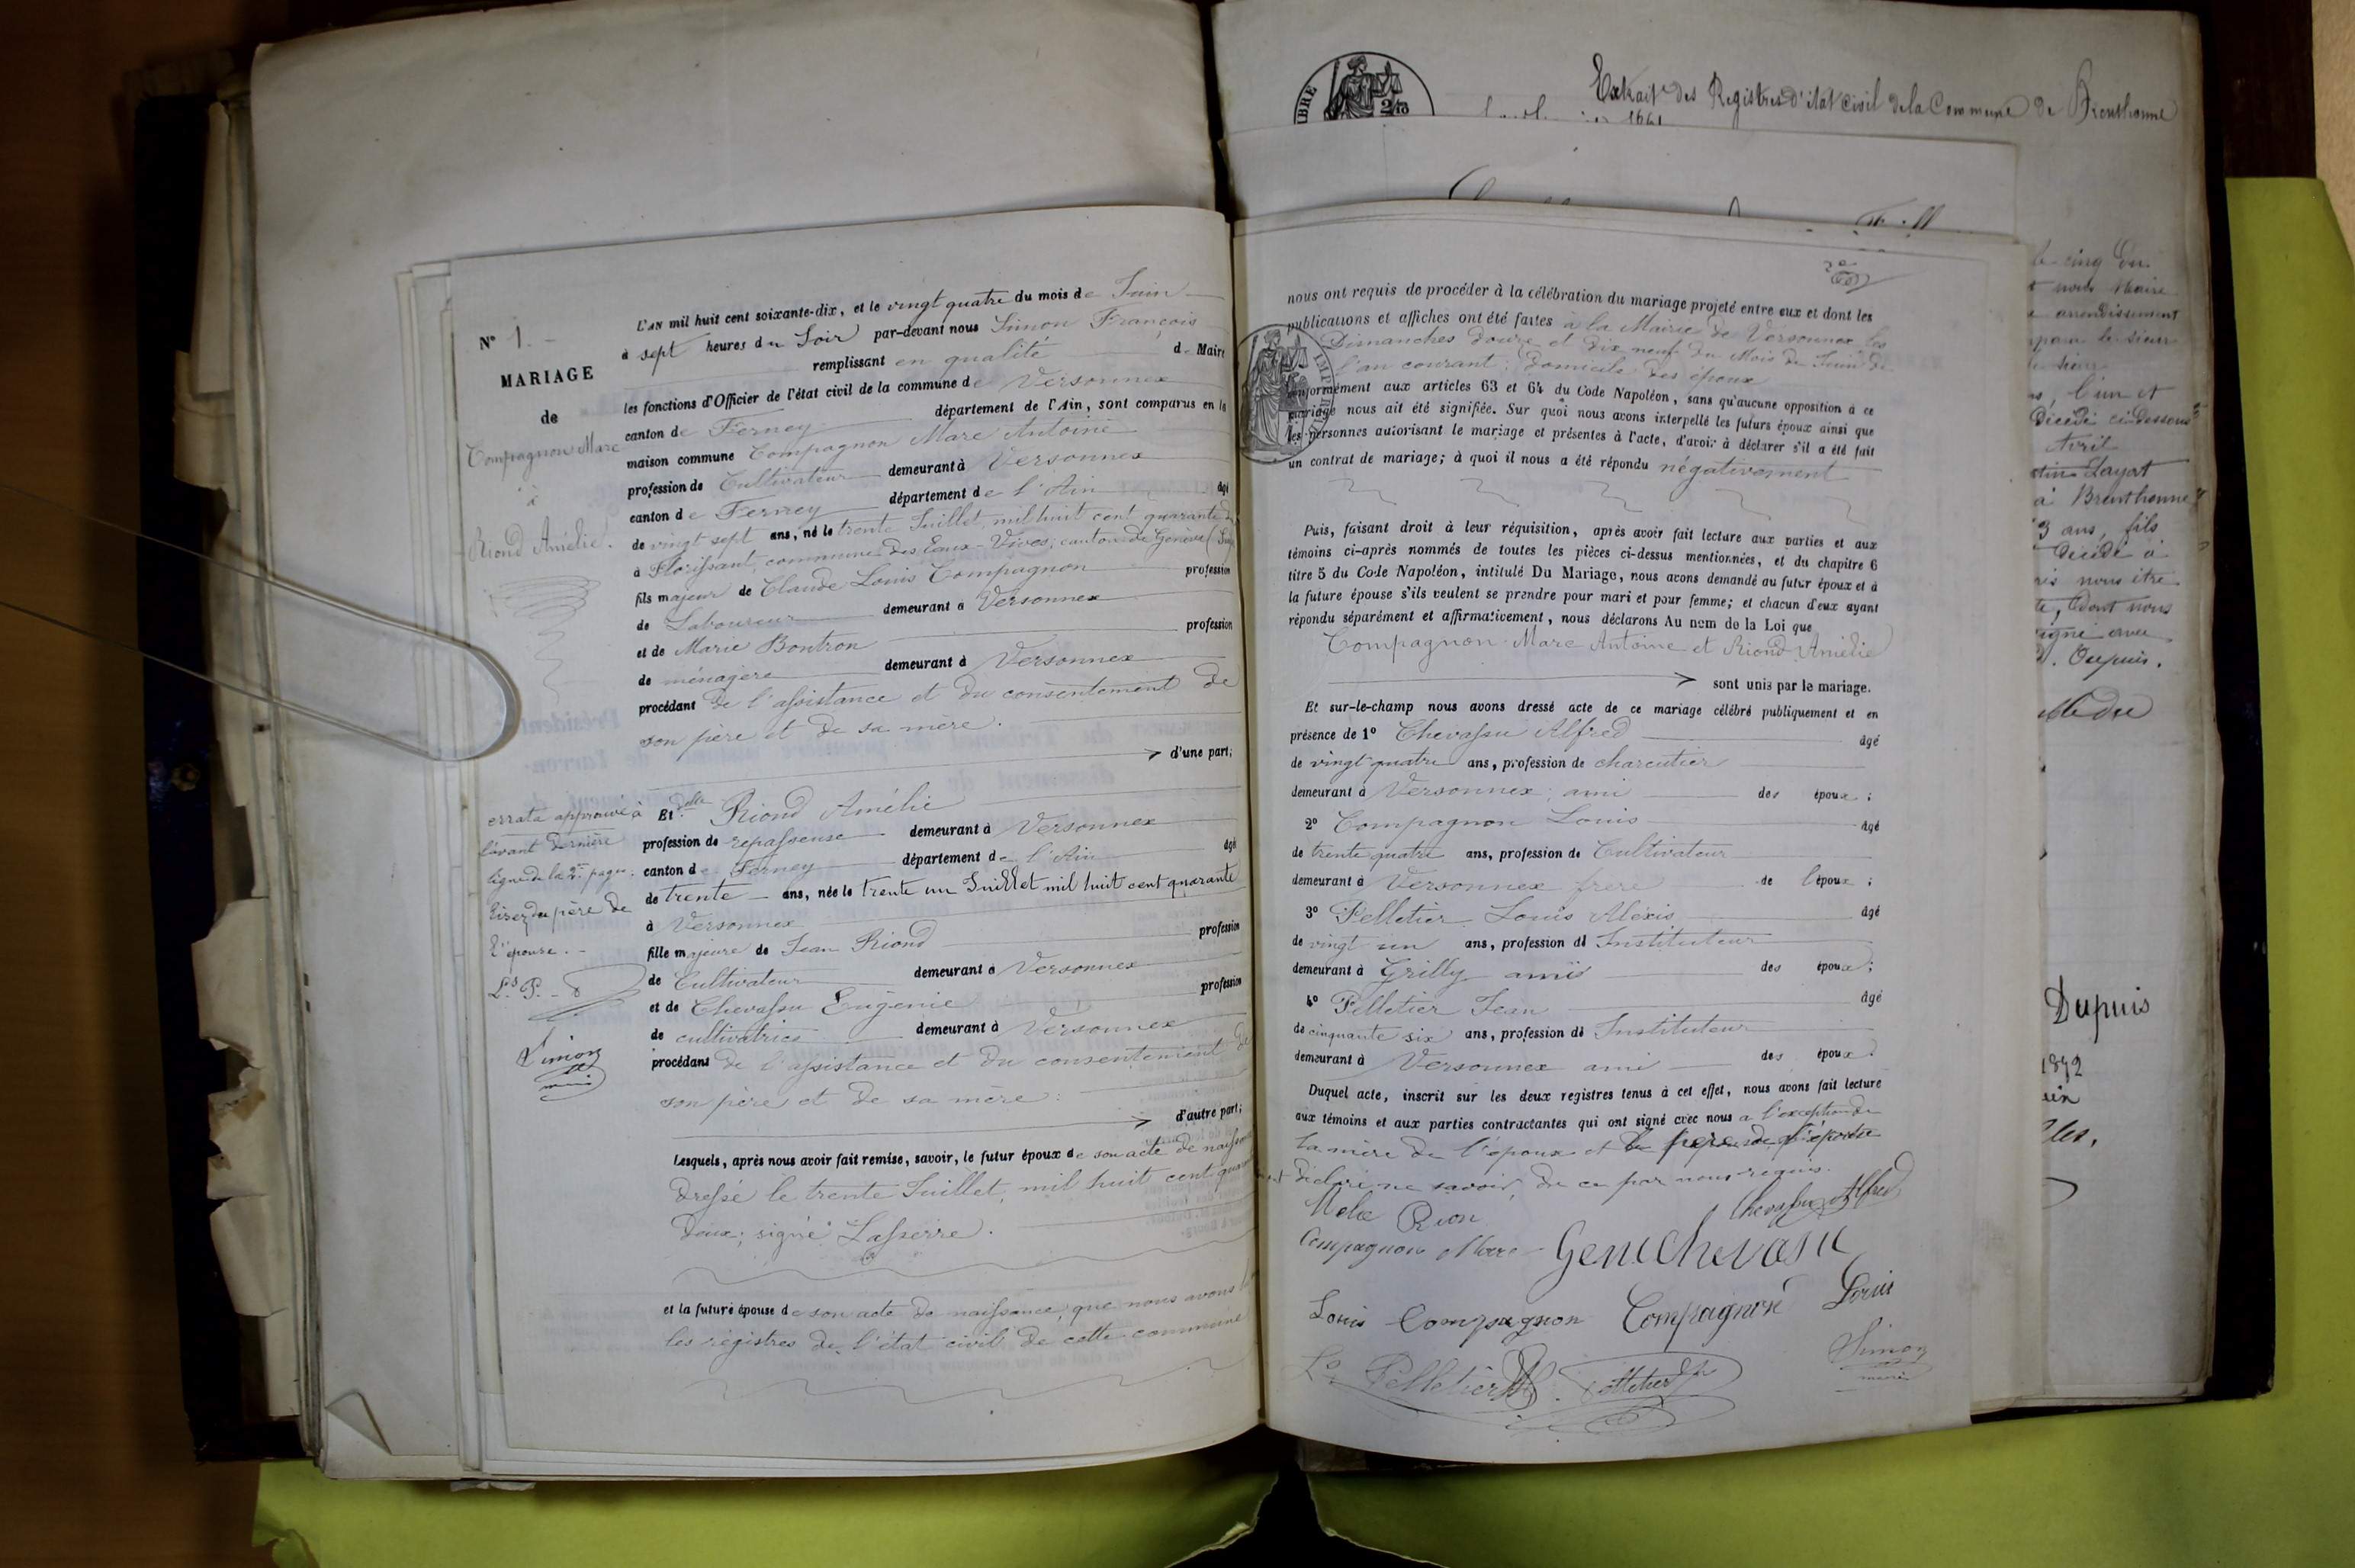 N° 1.
MARIAGE
de
Compagnon Marc
à
Riond Amélie.
errata approuvé à
l'avant dernière
ligne de la 2me page:
lisez du père de
l'épouse. -
Ls P.
Simon
maire
L'AN mil huit cent soixante-dix, et le vingt quatre du mois de Juin
à sept heures du Soir par-devant nous Simon François
remplissant en qualité de Maire
les fonctions d'Officier de l'état civil de la commune de Versonnex
canton de Ferney département de l'Ain, sont comparus en la
maison commune Compagnon Marc Antoine
profession de Cultivateur demeurant à Versonnex
canton de Ferney département de l'Ain âgé
de vingt sept ans, né le trente Juillet, mil huit cent quarante
à Florissant, commune des Eaux-Vives, canton de Genève
fils majeur de Claude Louis Compagnon profession
de Laboureur demeurant à Versonnex
et de Marie Bontron profession
de ménagère demeurant à Versonnex
procédant de l'assistance et du consentement de
son père et de sa mère.
d'une part;
Et dlle Riond Amélie
profession de repasseuse demeurant à Versonnex
canton de Ferney département de l'Ain âgé
de trente ans, née le trente un Juillet mil huit cent quarante
à Versonnex
fille majeure de Jean Riond profession
de Cultivateur demeurant à Versonnex
et de Chevassu Eugénie profession
de cultivatrice demeurant à Versonnex
procédant de l'assistance et du consentement de
son père et de sa mère:
d'autre part;
Lesquels, après nous avoir fait remise, savoir, le futur époux de son acte de
dressé le trente Juillet, mil huit cent
deux; signé Lasserre.
et la future épouse de son acte de naissance, que nous avons
les régistres de l'état civil de cette commune
Extrait des Registres d'état civil de la Commune de Brenthonne
nous ont requis de procéder à la célébration du mariage projeté entre eux et dont les
publications et affiches ont été faites à la Mairie de Versonnex les
Dimanches douze et dix neuf du Mois de Juin de
l'an courant; Domicile des époux
conformément aux articles 63 et 64 du Code Napoléon, sans qu'aucune opposition à ce
mariage nous ait été signifiée. Sur quoi nous avons interpellé les futurs époux ainsi que
les personnes autorisant le mariage et présentes à l'acte, d'avoir à déclarer s'il a été fait
un contrat de mariage; à quoi il nous a été répondu négativement
Puis, faisant droit à leur réquisition, après avoir fait lecture aux parties et aux
témoins ci-après nommés de toutes les pièces ci-dessus mentionnées, et du chapitre 6
titre 5 du Code Napoléon, intitulé Du Mariage, nous avons demandé au futur époux et à
la future épouse s'ils veulent se prendre pour mari et pour femme; et chacun d'eux ayant
répondu séparément et affirmativement, nous déclarons Au nom de la Loi que
Compagnon Marc Antoine et Riond Amélie
sont unis par le mariage.
Et sur-le-champ nous avons dressé acte de ce mariage célébré publiquement et en
présence de 1° Chevassu Alfred âgé
de vingt quatre ans, profession de charcutier
demeurant à Versonnex, ami des époux;
2° Compagnon Louis âgé
de trente quatre ans, profession de Cultivateur
demeurant à Versonnex frère de l'époux;
3° Pelletier Louis Alexis âgé
de vingt un ans, profession de Instituteur
demeurant à Grilly ami des époux;
4° Pelletier Jean âgé
de cinquante six ans, profession de Instituteur
demeurant à Versonnex ami des époux.
Duquel acte, inscrit sur les deux registres tenus à cet effet, nous avons fait lecture
aux témoins et aux parties contractantes qui ont signé avec nous à l'exception de
la mère de l'époux et du père de l'épouse
déclaré ne savoir, de ce par nous requis.
Chevassu Alfred
Compagnon Marc
Louis Compagnon Compagnon Louis
Simon
maire
Ls Pelletier Pelletier
le cinq
nous Maire
arrondissement
l'un et
décédé ci-dessous
Avril
à Brenthonne
3 ans, fils
décédé à
nous être
dont nous
Dupuis.
Dupuis
1872